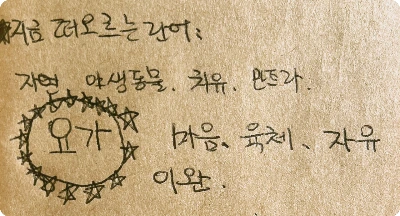 지금 떠오르는 단어:
자연 야생동물. 치유. 만트라.
요가 마음. 육체. 자유
이완.